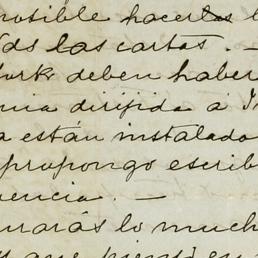 posible hacerlos l
das las cartas. —
York deben haber
nia dirijida á
a están instalado
propongo escrib
encia. —
rarás lo much
que pienso en